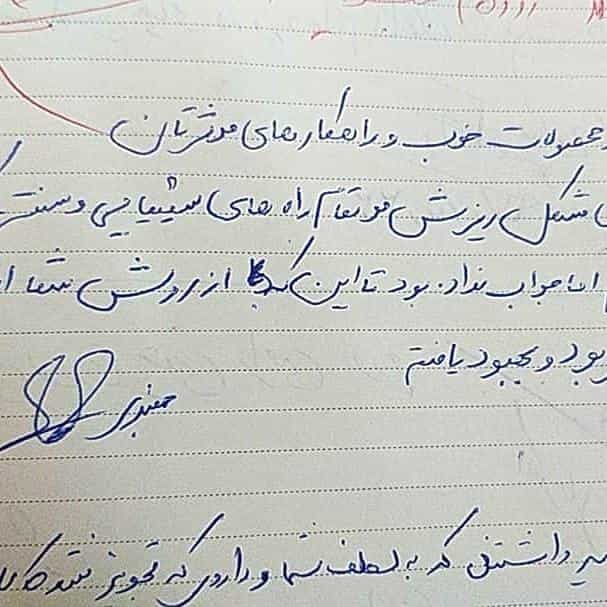 محصولات خوب و راهکارهای موثرتان
مشکل ریزش مو تمام راه های شیمیایی و سنتی
اما جواب نداده بود تا این که از روش شما
بود و بهبود یافتم
داشتنی که به لطف شما و داروی که تجویز شده